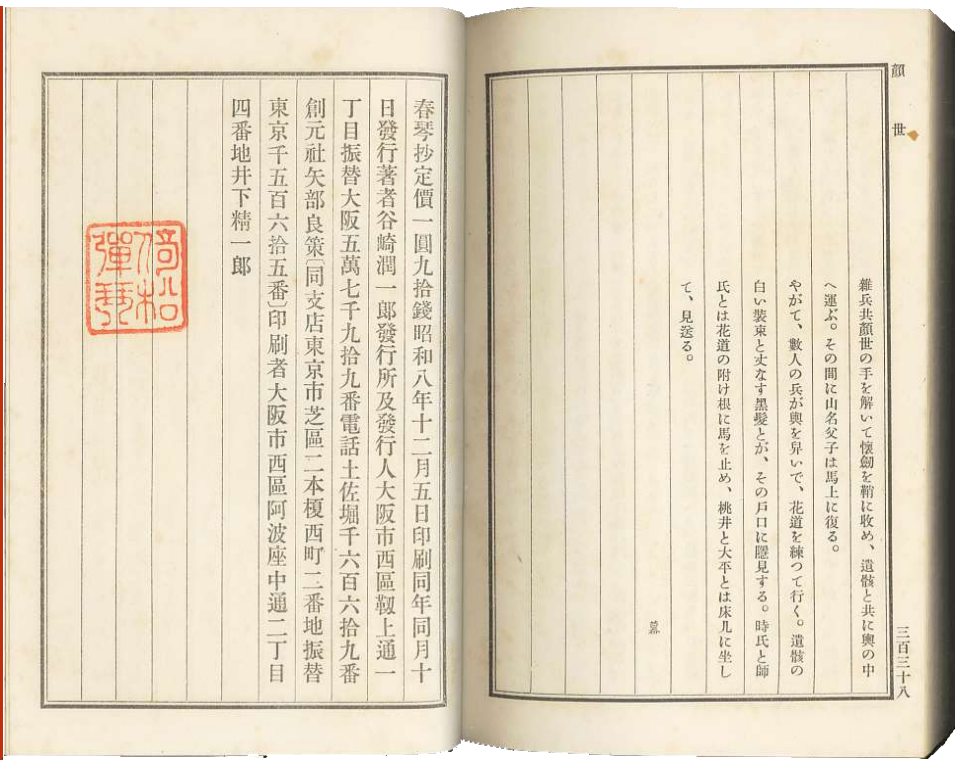 顏世
雜兵共顏世の手を解いて懷劒を鞘に收め、遺骸と共に輿の中
へ運ぶ。その間に山名父子は馬上に復る。
やがて、數人の兵が輿を舁いで、花道を練つて行く。遺骸の
白い裝束と丈なす黑髮とが、その戸口に隱見する。時氏と師
氏とは花道の附け根に馬を止め、桃井と大平とは床几に坐し
て、見送る。
幕
三百三十八
春琴抄定價一圓九拾錢昭和八年十二月五日印刷同年同月十
日發行著者谷崎潤一郎發行所及發行人大阪市西區靱上通一
丁目振替大阪五萬七千九拾九番電話土佐堀千六百六拾九番
創元社矢部良策〔同支店東京市芝區二本榎西町二番地振替
東京千五百六拾五番〕印刷者大阪市西區阿波座中通二丁目
四番地井下精一郎
倚松
彈琴